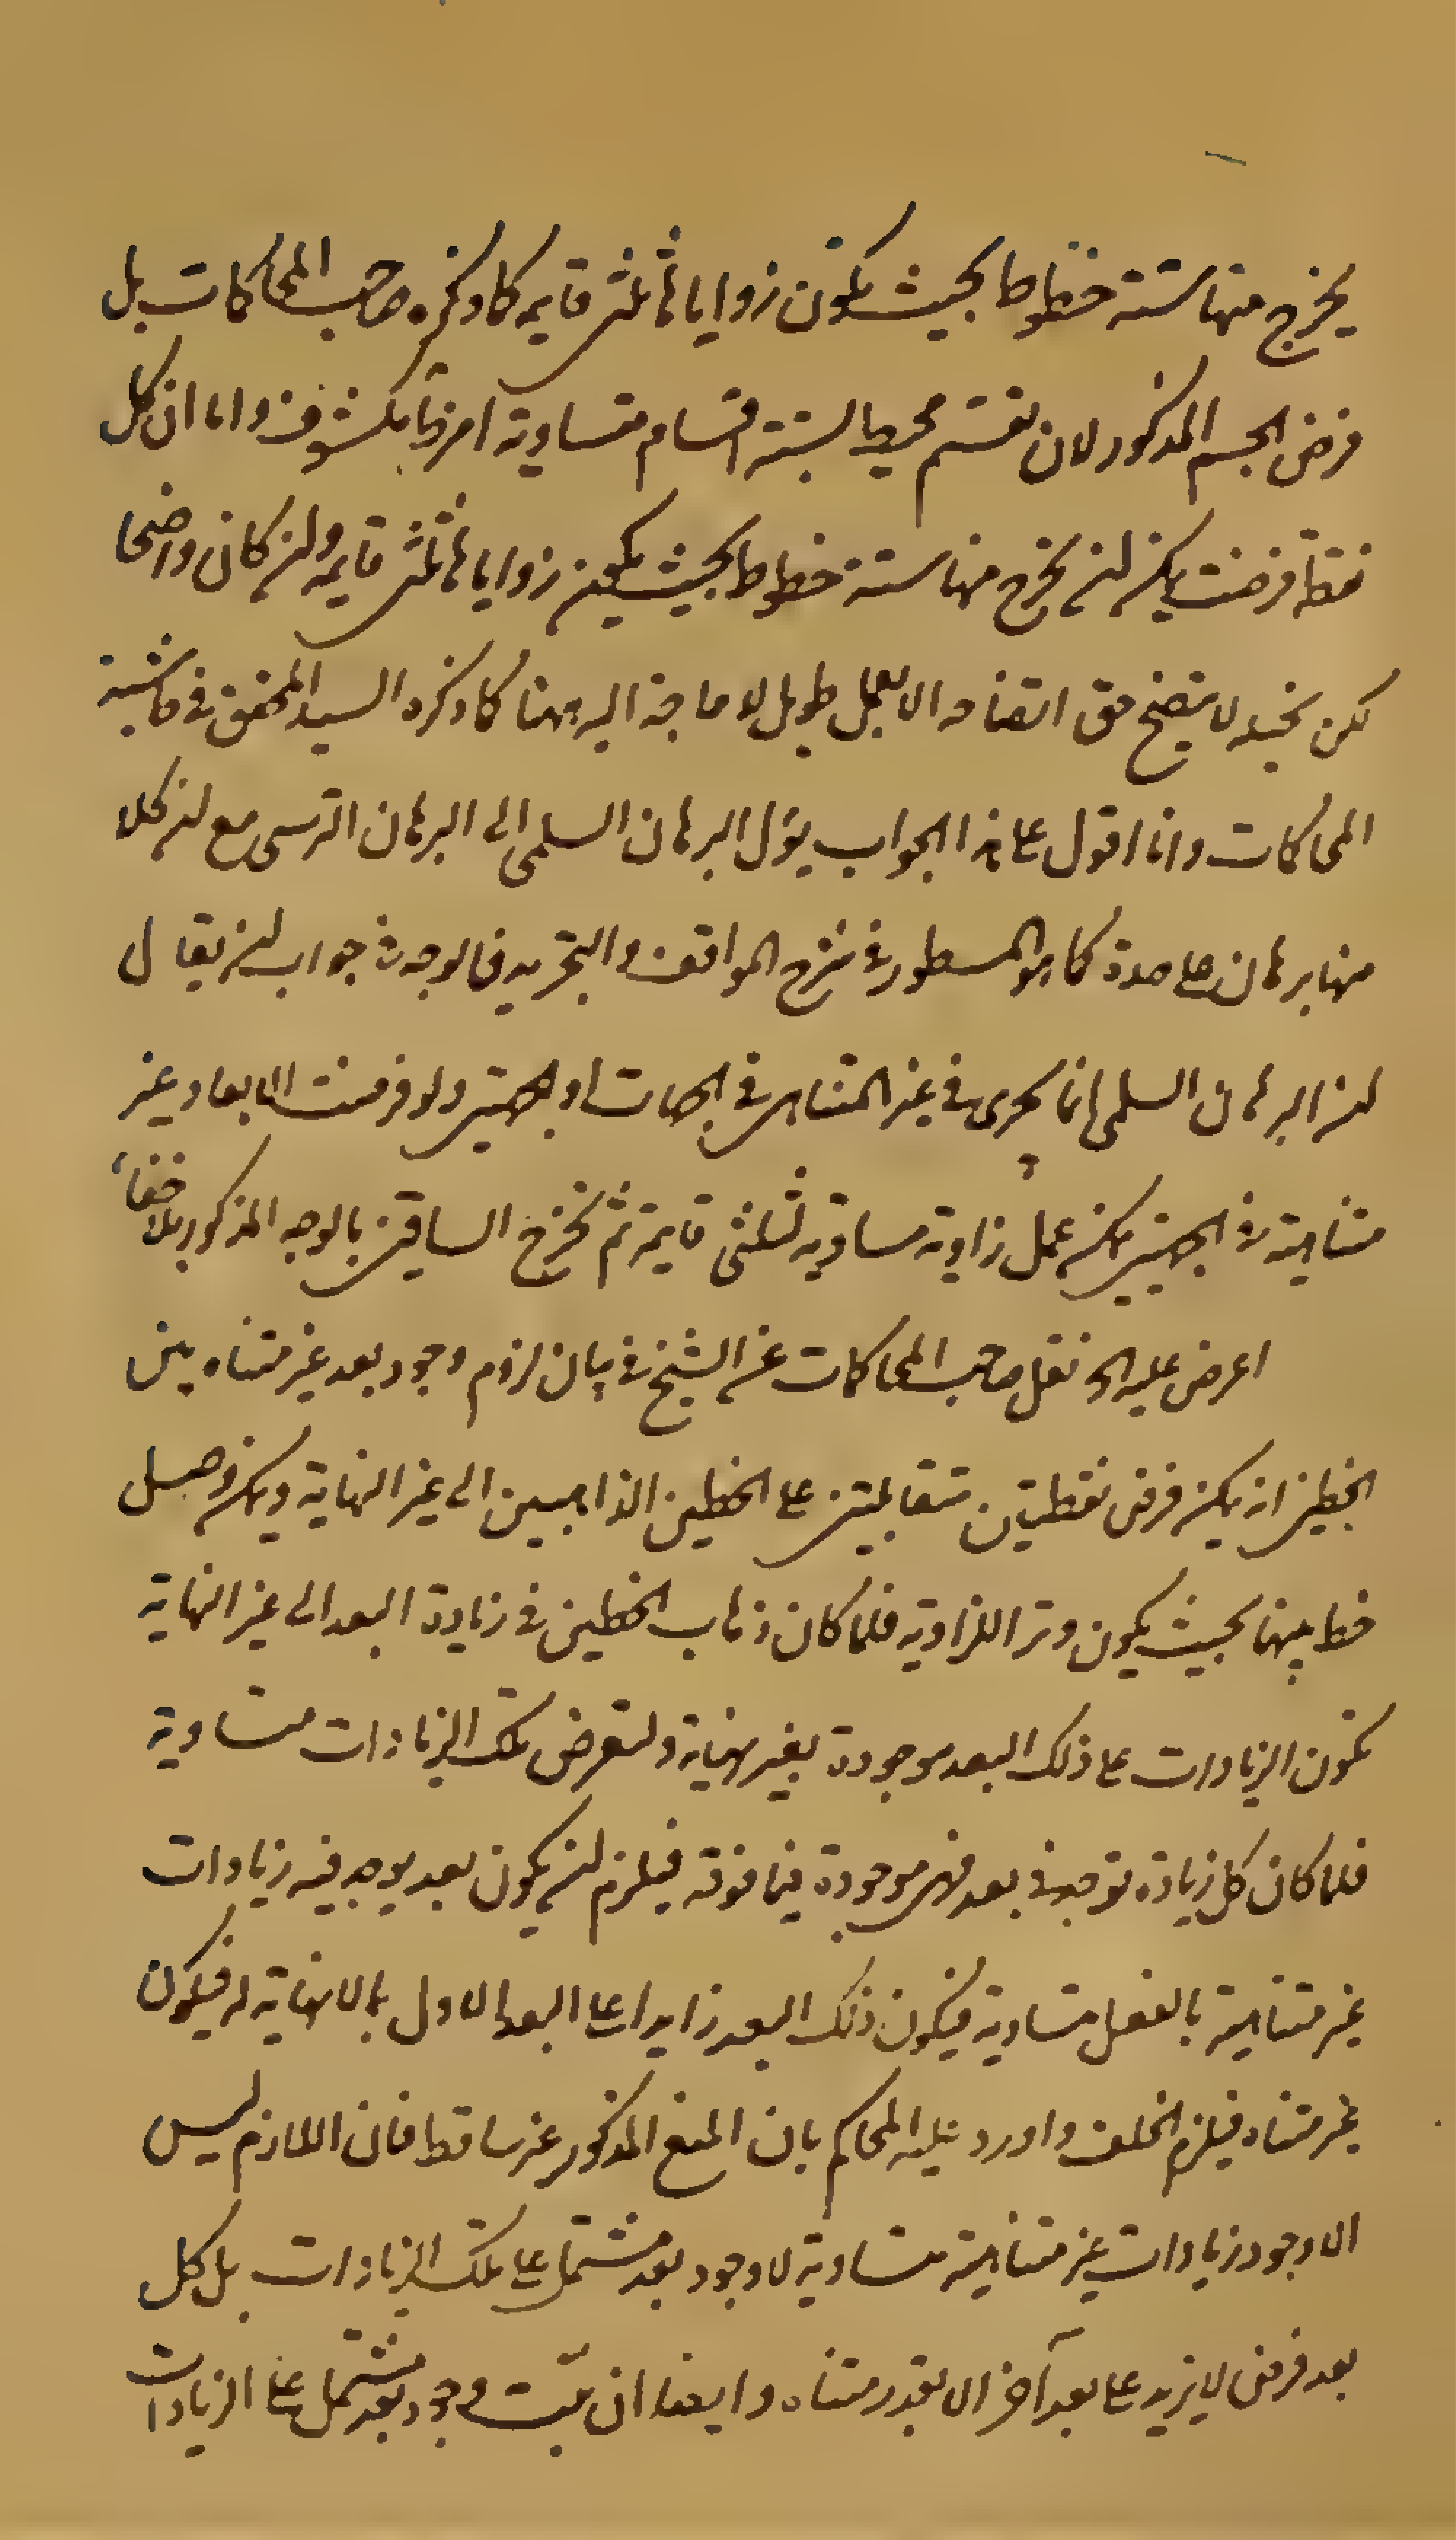 يخرج منها ستة خطوط بحيث يكون زواياها ثلثى قايمه كما ذكره صاحب المحاكمات بل
فرض الجسم المذكور لان نقسم محيطه بستة اقسام متساوية امر مكشوف واما ان كل
نقطة فرضت يمكن ان يخرج منها ستة خطوط بحيث يكون زواياها ثلثى قايمه وان كان واضحا
لكن بحسبه لا يتضح حق اتضاحه الا بعمل طويل لا حاجة اليه ههنا كما ذكره السيد المحقق فى حاشية
المحاكمات وانا اقول على هذا الجواب يؤل البرهان السلمى الى البرهان الترسى مع ان كلا
منها برهان على حدة كما هو المسطور فى شرح المواقف والتجريد فالوجه فى جواب ان يقال
ان البرهان السلمى انما يجرى فى غير المتناهى فى الجهات او الجهتين ولو فرضت الابعاد غير
متناهية فى الجهتين يمكن عمل زاوية مساوية لثلثى قايمة ثم نخرج الساقين بالوجه المذكور بلا خفاء
اعرض عليه الخ نقل صاحب المحاكمات عن الشيخ فى بيان لزوم وجود بعد غير متناه بين
الخطين انه يمكن فرض نقطتين متقابلتين على الخطين الذاهبين الى غير النهاية ويمكن وصل
خط بينهما بحيث يكون وترا للزاوية فلما كان ذهاب الخطين فى زيادة البعد الى غير النهاية
تكون الزيادات على ذلك البعد موجودة بغير نهاية ولنفرض تلك الزيادات متساوية
فلما كان كل زيادة توجد فى بعد فهى موجودة فيما فوقه فيلزم ان يكون بعد يوجد فيه زيادات
غير متناهية بالفعل متساوية فيكون ذلك البعد زايدا على البعد الاول بما لا نهاية له فيكون
غير متناه فيلزم الخلف واورد عليه المحاكم بان المنع المذكور غير ساقط فان اللازم ليس
الا وجود زيادات غير متناهية متساوية لا وجود بعد مشتمل على تلك الزيادات بل كل
بعد فرض لا يزيد على بعد آخر الا بقدر متناه وايضا ان ثبت وجود بعد مشتمل على الزيادات